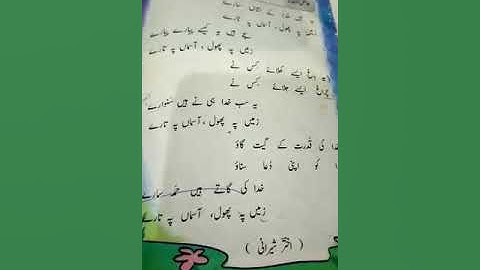 یہ ہیں خدا کے احسان سارے
زمیں پہ پھول، آسماں پہ تارے
ہیں یہ کیسے پیارے پیارے
زمیں پہ پھول، آسماں پہ تارے
یہ باغ ایسے کھلائے کس نے
چراغ ایسے جلائے کس نے
یہ سب خدا ہی نے ہیں سنوارے
زمیں پہ پھول، آسماں پہ تارے
کی قدرت کے گیت گاؤ
کو اپنی دعا سناؤ
خدا کی گاتے ہیں حمد سارے
زمیں پہ پھول، آسماں پہ تارے
(اختر شیرانی)